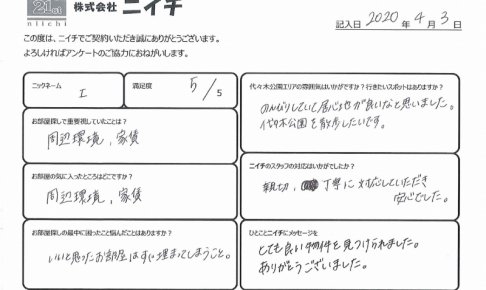 21st
niichi
株式会社 ニイチ
記入日 2020 年 4 月 3 日
この度は、ニイチでご契約いただき誠にありがとうございます。
よろしければアンケートのご協力におねがいします。
ニックネーム
I
満足度
5/5
お部屋探しで重要視していたことは?
周辺環境、家賃
お部屋の気に入ったところはどこですか?
周辺環境、家賃
お部屋探しの最中に困ったこと悩んだことはありますか?
いいと思ったお部屋はすぐ埋まってしまうこと。
代々木公園エリアの雰囲気はいかがですか?行きたいスポットはありますか?
のんびりしていて居心地が良いなと思いました。
代々木公園を散歩したいです。
ニイチのスタッフの対応はいかがでしたか?
親切、丁寧に対応していただき
安心でした。
ひとことニイチにメッセージを
とても良い物件を見つけられました。
ありがとうございました。